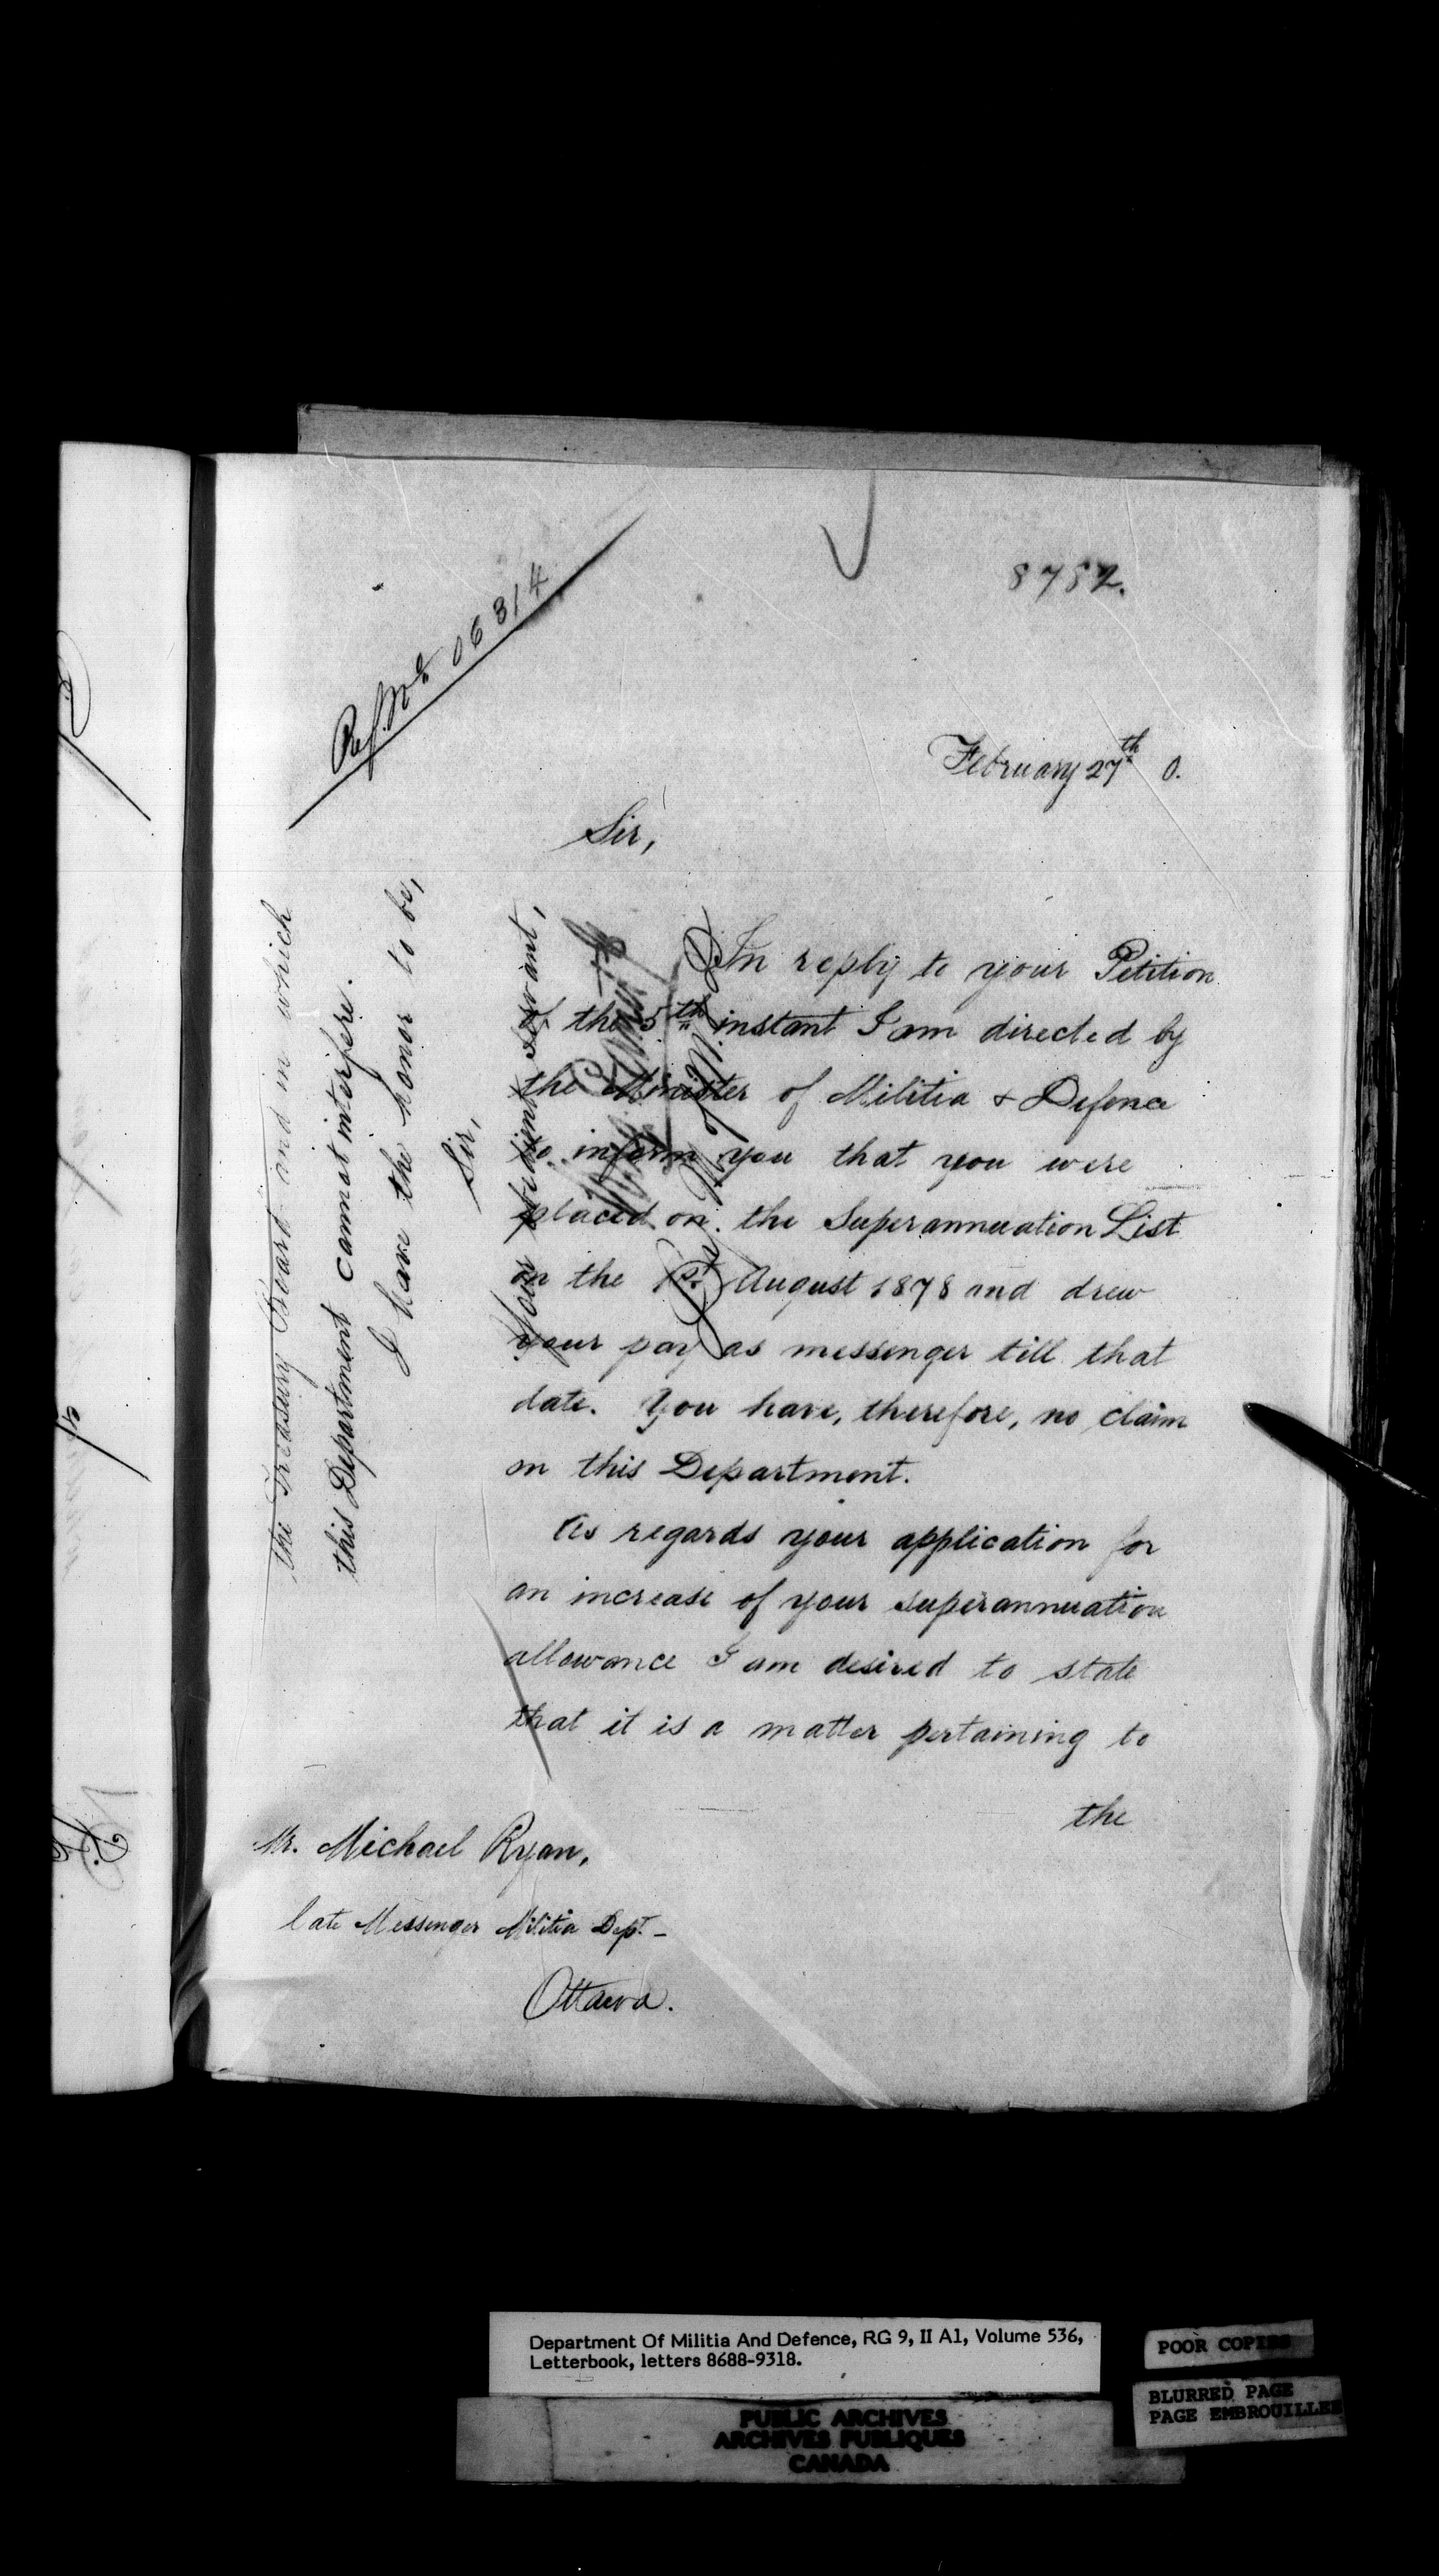 8782.
Ref. No 06314
February 27th 0.
Sir,
In reply to your Petition
of the 5th instant I am directed by
the Minister of Militia & Defence
to inform you that you were
placed on the Superannuation List
on the 1st August 1878 and drew
your pay as messenger till that
date. You have, therefore, no claim
on this Department.
As regards your application for
an increase of your superannuation
allowance I am desired to state
that it is a matter pertaining to
the
Mr. Michael Ryan,
late Messenger Militia Dept. –
Ottawa.
the Treasury Board and in which
this Department cannot interfere.
I have the honor to be,
Sir,
Your obedient servant,
Department Of Militia And Defence, RG 9, II A1, Volume 536,
Letterbook, letters 8688-9318.
POOR COPIES
BLURRED PAGE
PAGE EMBROUILLEE
PUBLIC ARCHIVES
ARCHIVES PUBLIQUES
CANADA